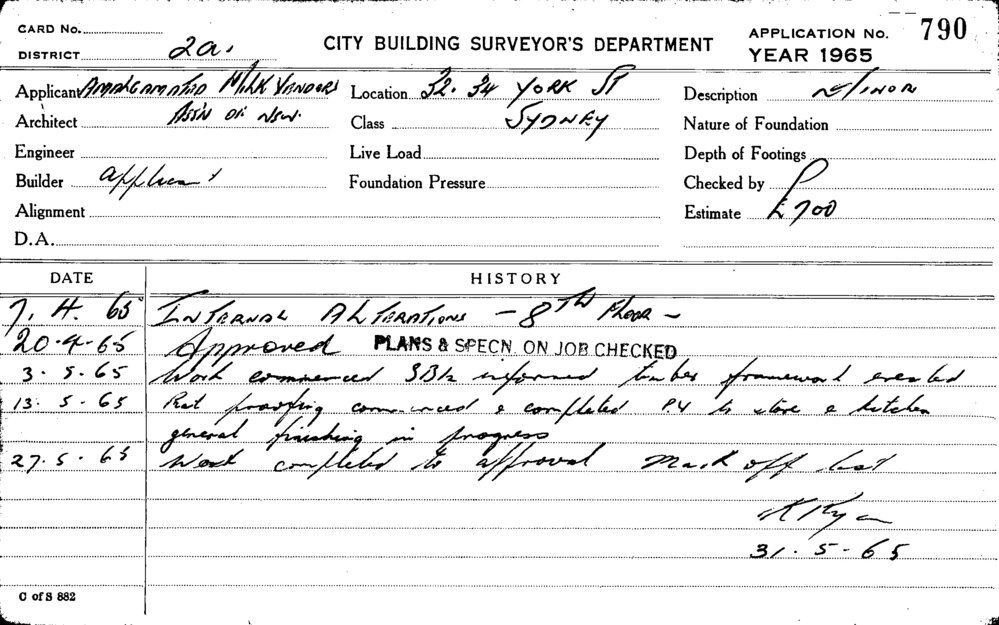 CARD No.
DISTRICT 2a.
CITY BUILDING SURVEYOR'S DEPARTMENT
APPLICATION No. 790
YEAR 1965
Applicant AMALGAMATED MILK VENDORS
Location 32-34 YORK ST
Description MINOR
Architect ASS'N OF NSW.
Class SYDNEY
Nature of Foundation
Engineer
Live Load
Depth of Footings
Builder applicant
Foundation Pressure
Checked by P
Alignment
Estimate £700
D.A.
DATE HISTORY
7. 4. 65 INTERNAL ALTERATIONS - 8TH FLOOR -
20-4-65 Approved PLANS & SPECN. ON JOB CHECKED
3. 5. 65 Work commenced informed timber framework erected
13. 5. 65 Rat proofing commenced & completed to store & kitchen
general finishing in progress
27. 5. 65 Work completed to approval Mark off last
K Ryan
31. 5 - 65
C of S 882